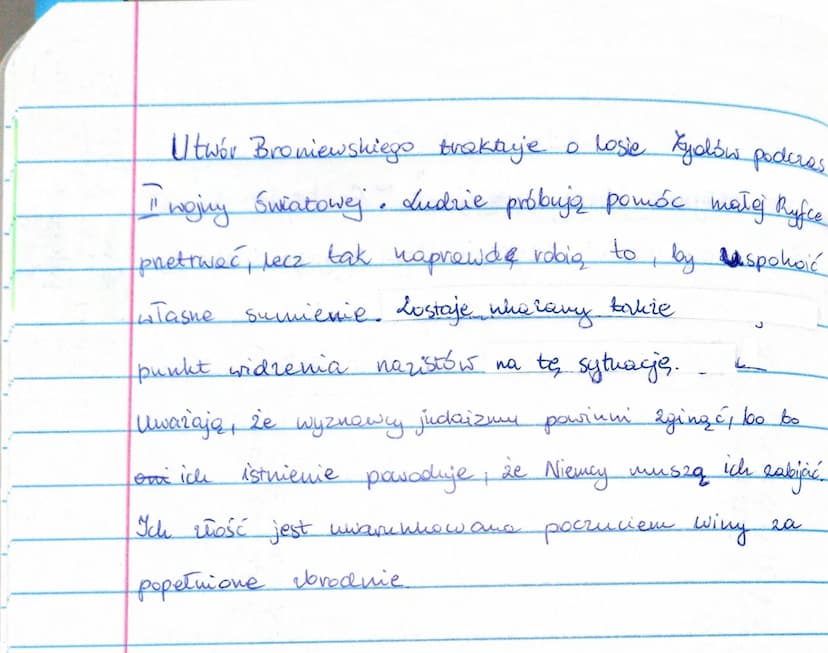 Utwór Broniewskiego traktuje o losie Żydów podczas
II wojny światowej. Ludzie próbują pomóc małej Ryfce
przetrwać, lecz tak naprawdę robią to, by uspokoić
własne sumienie. Zostaje ukazany także
punkt widzenia nazistów na tę sytuację.
Uważają, że wyznawcy judaizmu powinni zginąć, bo to
oni ich istnienie powoduje, że Niemcy muszą ich zabijać.
Ich złość jest uwarunkowana poczuciem winy za
popełnione zbrodnie.